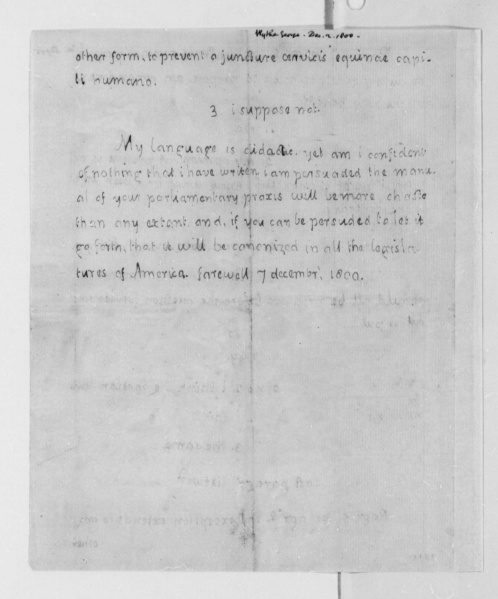 Wythe George - Dec. 7. 1800 -
other form, to prevent a juncture cervicis equinae capi-
ti humano.
3 i suppose not.
My language is didactic. yet am i confident
of nothing that i have written. i am persuaded the manu-
al of your parliamentary praxis will be more chaste
than any extant, and, if you can be persuded to let it
go forth, that it will be canonized in all the legisla-
tures of America. farewell 7 december, 1800.